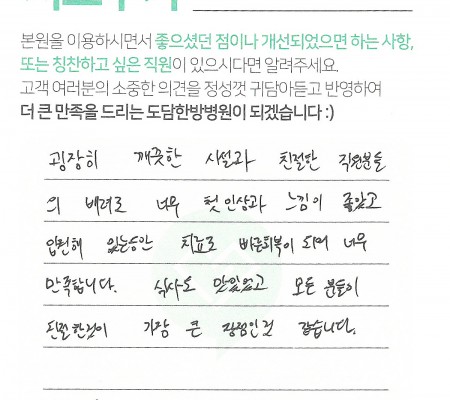 본원을 이용하시면서 좋으셨던 점이나 개선되었으면 하는 사항,
또는 칭찬하고 싶은 직원이 있으시다면 알려주세요.
고객 여러분의 소중한 의견을 정성껏 귀담아듣고 반영하여
더 큰 만족을 드리는 도담한방병원이 되겠습니다 :)
굉장히 깨끗한 시설과 친절한 직원분들
의 배려로 너무 첫 인상과 느낌이 좋았고
입원해 있는동안 치료로 빠른회복이 되며 너무
만족합니다. 식사도 맛있었고 모든 분들이
친절한것이 가장 큰 장점인것 같습니다.